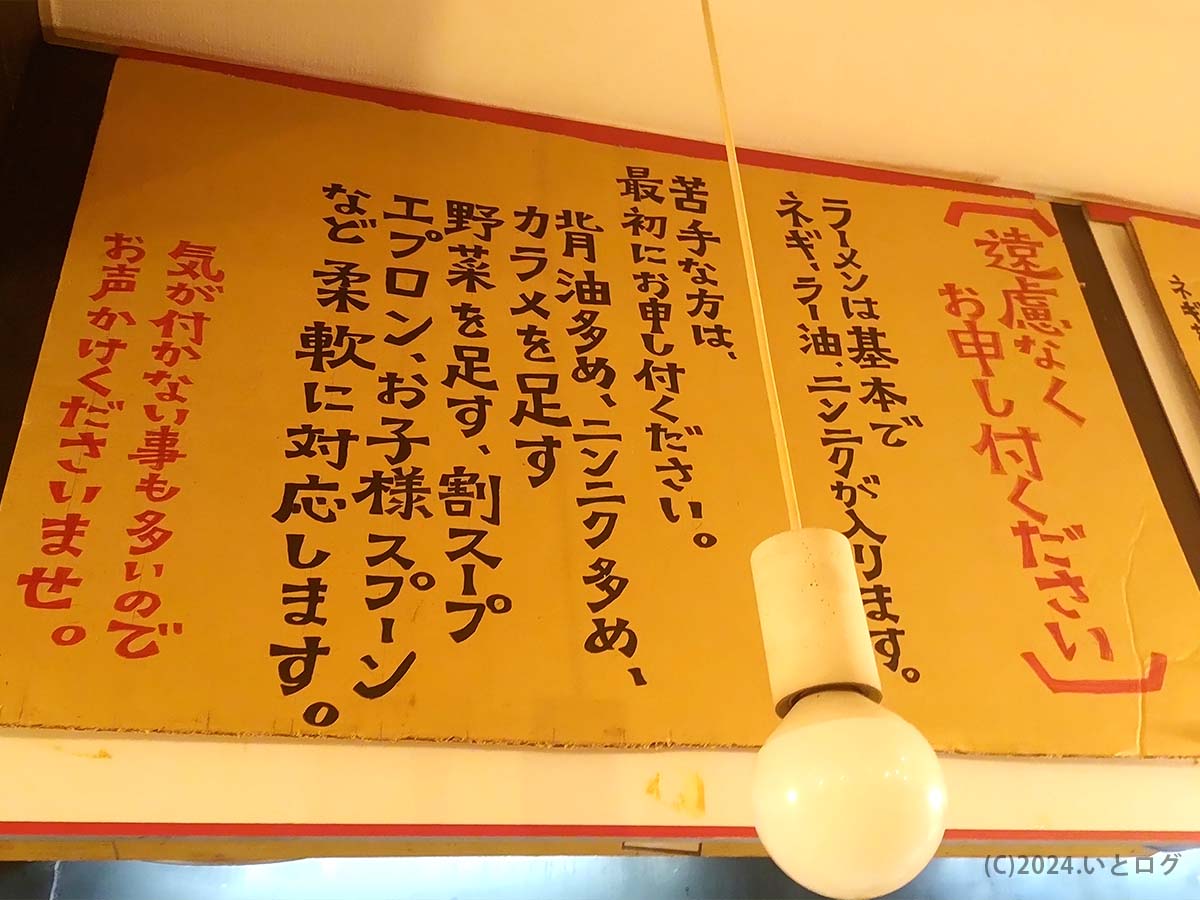 【遠慮なく
お申し付ください】
ラーメンは基本で
ネギ、ラー油、ニンニクが入ります。
苦手な方は、
最初にお申し付ください。
背油多め、ニンニク多め、
カラメを足す
野菜を足す、割スープ
エプロン、お子様スプーン
など柔軟に対応します。
気が付かない事も多いので
お声かけくださいませ。
(C)2024.いとログ